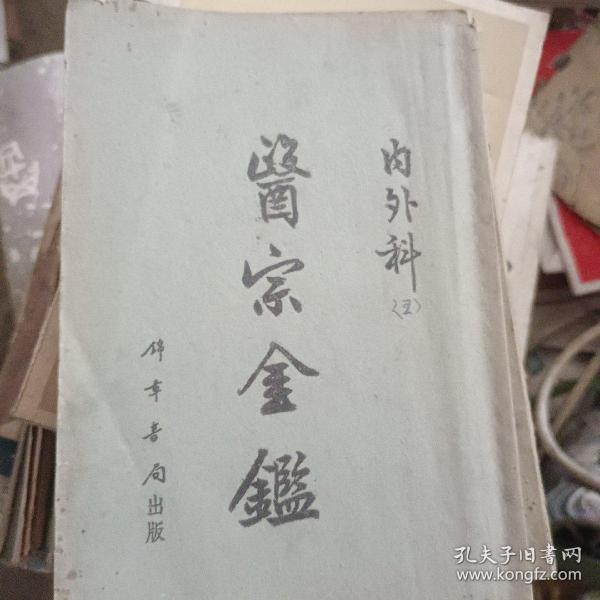 内外科
〈五〉
醫宗金鑑
錦章書局出版
孔夫子旧书网
www.kongfz.com